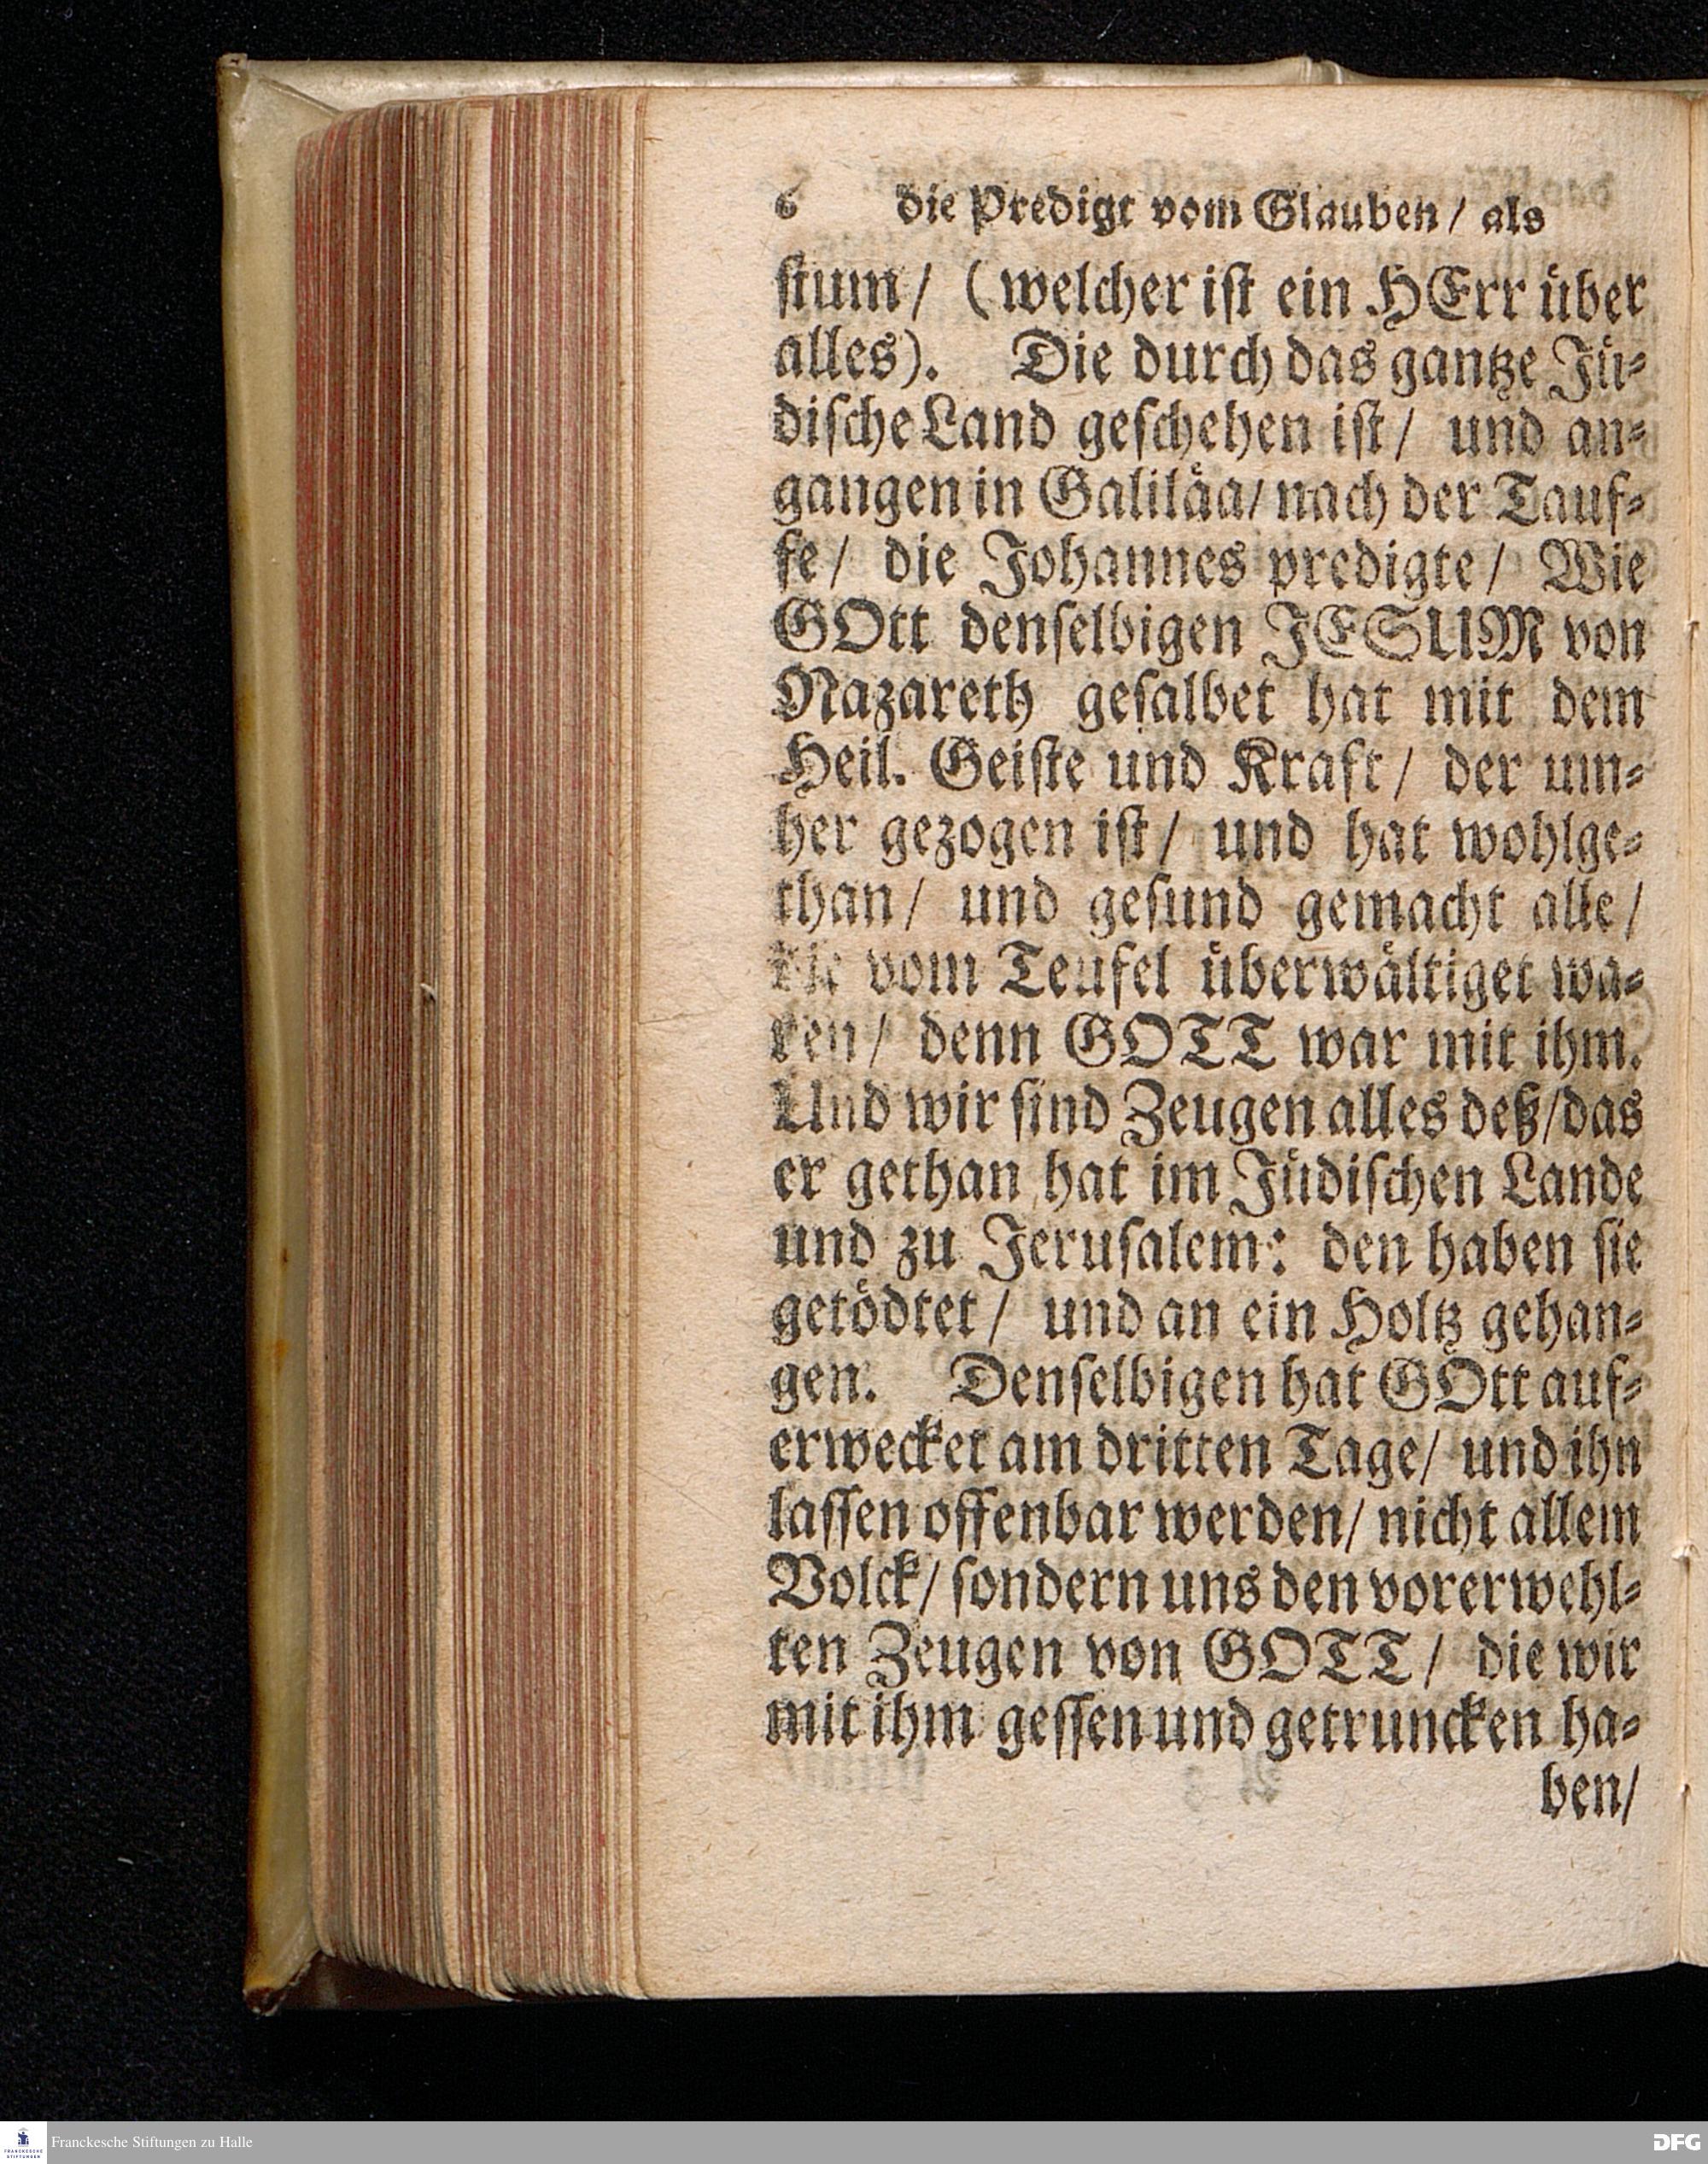 6 die Predigt vom Glauben / als
stum / ( welcher ist ein HErr über
alles). Die durch das gantze Jü-
dische Land geschehen ist / und an-
gangen in Galiläa / nach der Tauf-
fe / die Johannes predigte / Wie
GOtt denselbigen JESUM von
Nazareth gesalbet hat mit dem
Heil. Geiste und Kraft / der um-
her gezogen ist / und hat wohlge-
than / und gesund gemacht alle /
die vom Teufel überwältiget wa-
ren / denn GOTT war mit ihm.
Und wir sind Zeugen alles deß / das
er gethan hat im Jüdischen Lande
und zu Jerusalem: den haben sie
getödtet / und an ein Holtz gehan-
gen. Denselbigen hat GOtt auf-
erwecket am dritten Tage / und ihn
lassen offenbar werden / nicht allem
Volck / sondern uns den vorerwehl-
ten Zeugen von GOTT / die wir
mit ihm gessen und getruncken ha-
ben /
FRANCKESCHE
STIFTUNGEN
Franckesche Stiftungen zu Halle
DFG